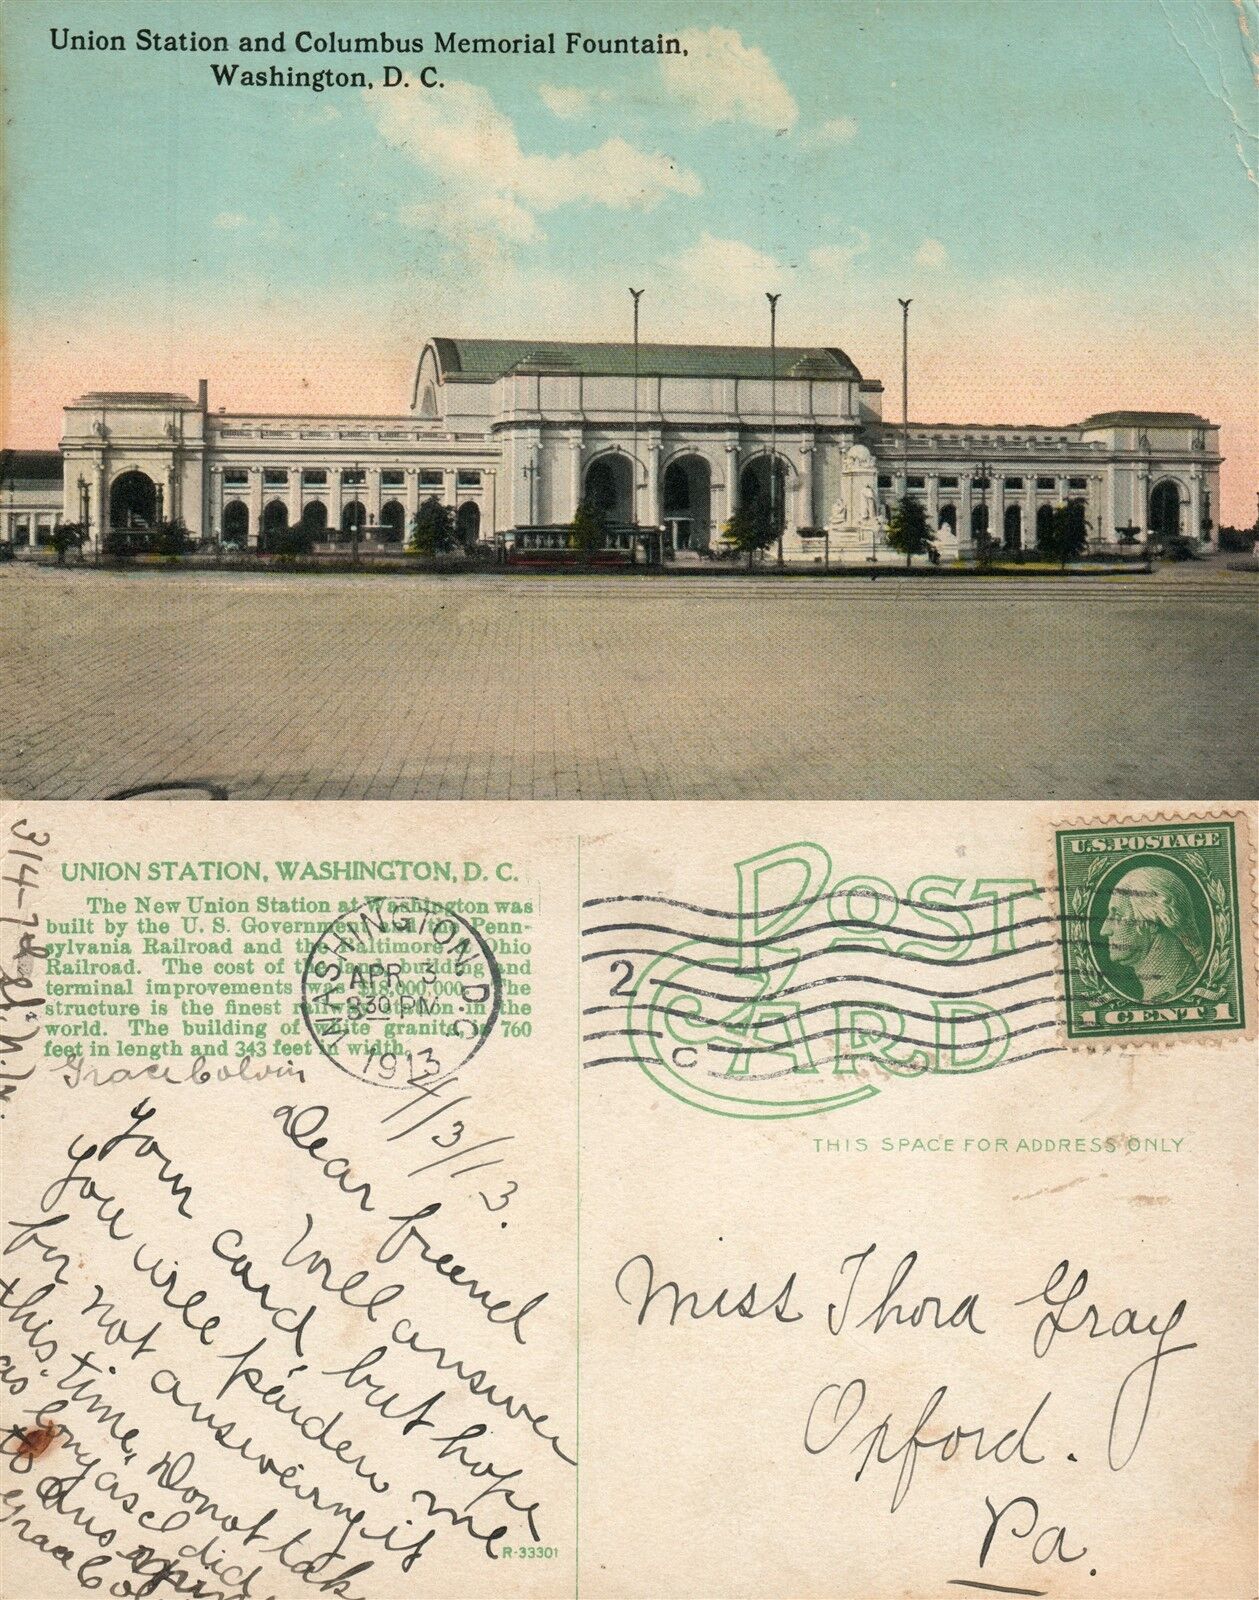 Union Station and Columbus Memorial Fountain,
Washington, D. C.
UNION STATION, WASHINGTON, D. C.
The New Union Station at Washington was
built by the U. S. Government and the Penn-
sylvania Railroad and the Baltimore & Ohio
Railroad. The cost of the land, building and
terminal improvements was $18,000,000. The
structure is the finest railway station in the
world. The building of white granite, is 760
feet in length and 343 feet in width.
WASHINGTON D.C.
APR 3
830 PM
1913
Grace Colvin
4/3/13.
Dear friend
Will answer
Your card, but hope
you will parden me
for not answering it
this time. Do not
as long as I did
to ans
Grace
R-33301
314-7th St. N.
POST
CARD
2
C
U.S. POSTAGE
1 CENT 1
THIS SPACE FOR ADDRESS ONLY
Miss Thora Gray
Oxford.
Pa.